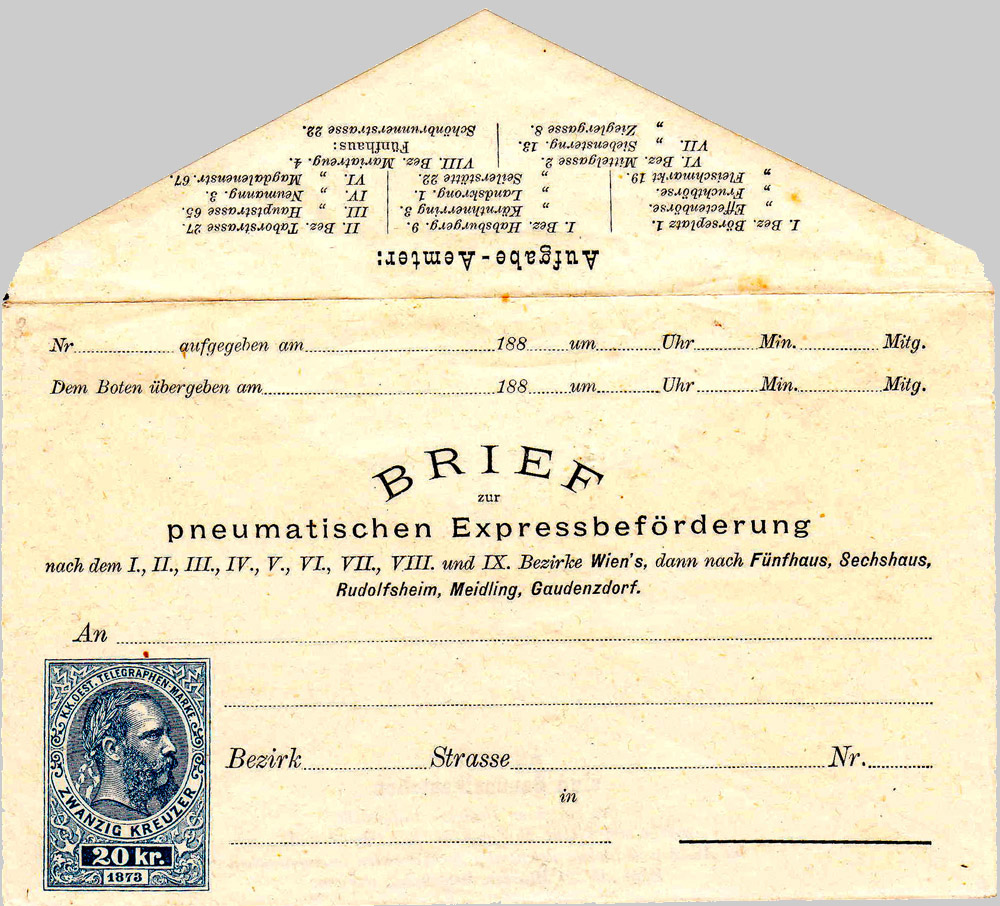 Aufgabe-Aemter:
I. Bez. Börseplatz 1. I. Bez. Habsburgerg. 9. II. Bez. Taborstrasse 27
„ Effectenbörse. „ Kärnthnerring 3. III. „ Hauptstrasse 65
„ Fruchtbörse. „ Landskrong. 1. IV. „ Neumanng. 3.
„ Fleischmarkt 19. „ Seilerstätte 22. VI. „ Magdalenenstr. 67.
VI. Bez. Mittelgasse 2. VIII. Bez. Mariatreug. 4.
VII. „ Siebensterng. 13. Fünfhaus:
„ Zieglergasse 8. Schönbrunnerstrasse 22.
Nr. aufgegeben am 188 um Uhr Min. Mitg.
Dem Boten übergeben am 188 um Uhr Min. Mitg.
BRIEF
zur
pneumatischen Expressbeförderung
nach dem I., II., III., IV., V., VI., VII., VIII. und IX. Bezirke Wien's, dann nach Fünfhaus, Sechshaus,
Rudolfsheim, Meidling, Gaudenzdorf.
An
K.K. OEST. TELEGRAPHEN-MARKE
ZWANZIG KREUZER
20 kr.
1873
Bezirk Strasse Nr.
in